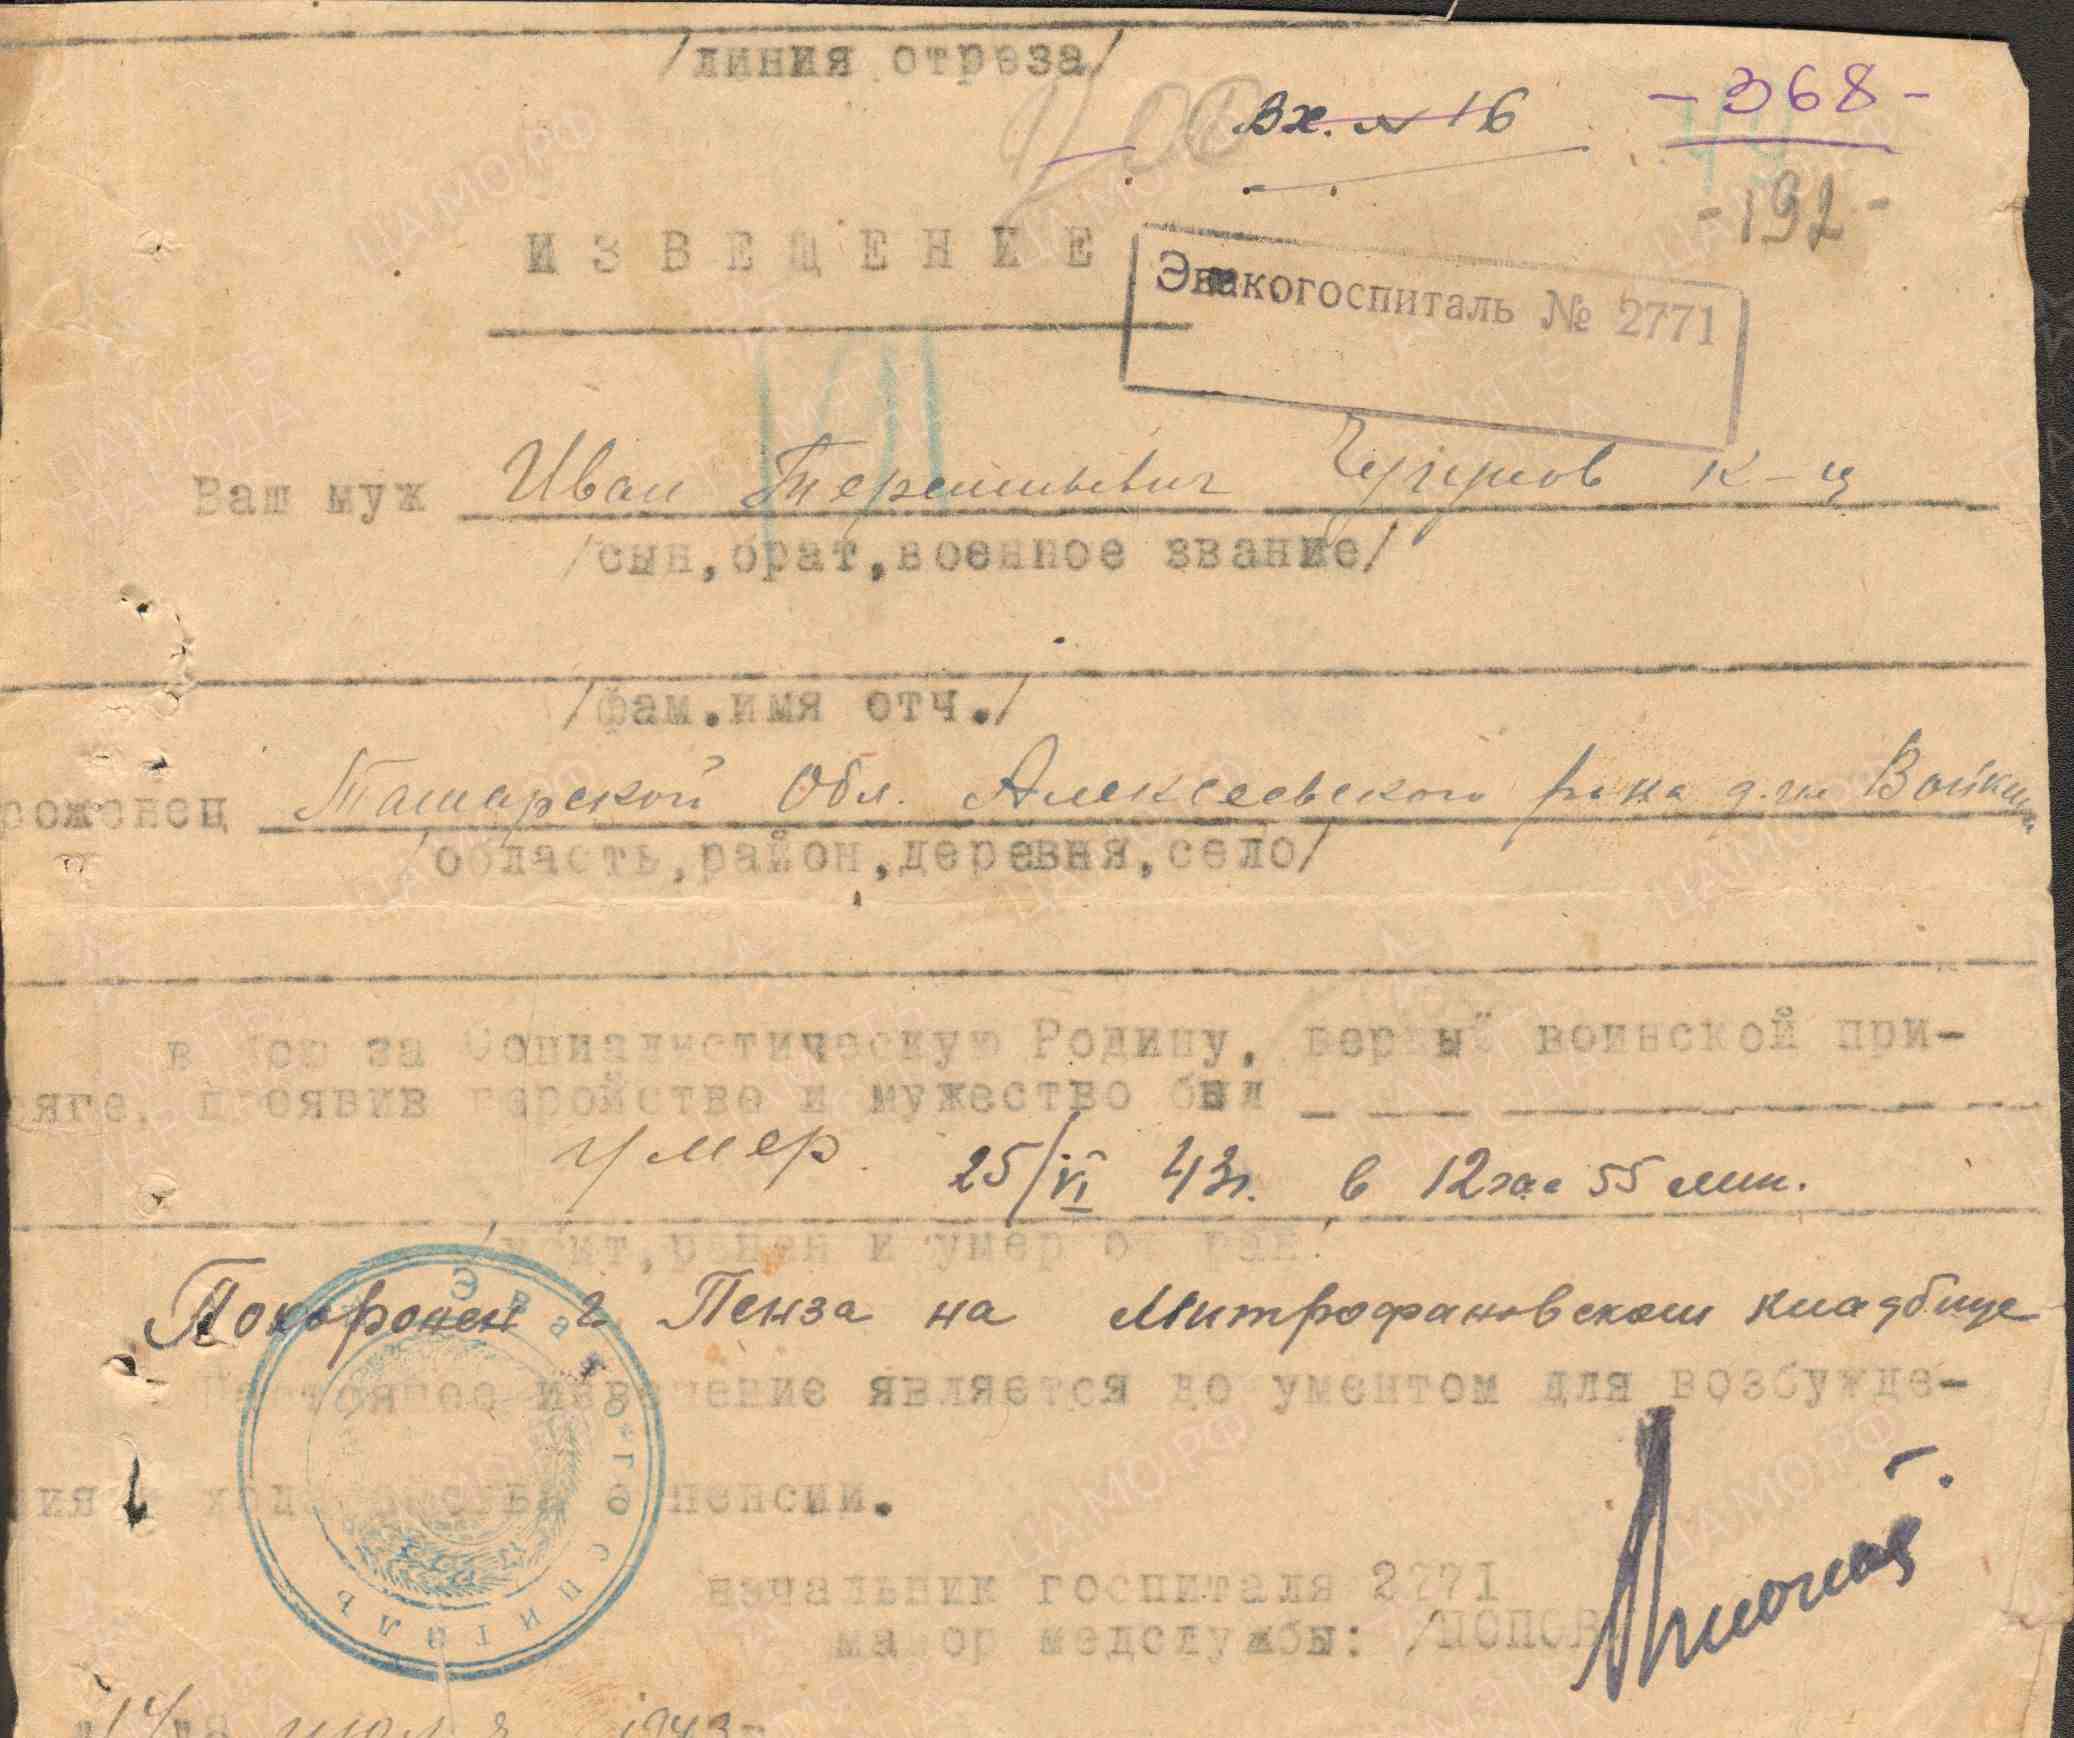 /линия отреза/
Вх. № 16
-368-
-192-
ИЗВЕЩЕНИЕ
Эвакогоспиталь № 2771
Ваш муж Иван Терентьевич к-ц
/сын,брат,военное звание/
/фам.имя отч./
роженец Татарской Обл. Алексеевского р-на
/область,район,деревня,село/
в бою за Социалистическую Родину, верный воинской при-
яге, проявив геройство и мужество был
умер 25/VI 43г. в 12 час 55 мин.
/убит,ранен и умер от ран/
Похоронен г Пенза на Митрофановском кладбище
Настоящее извещение является документом для возбужде-
ия ходатайства о пенсии.
Эвакогоспиталь
начальник госпиталя 2771
майор медслужбы: /ПОПОВ
"14" июля 1943